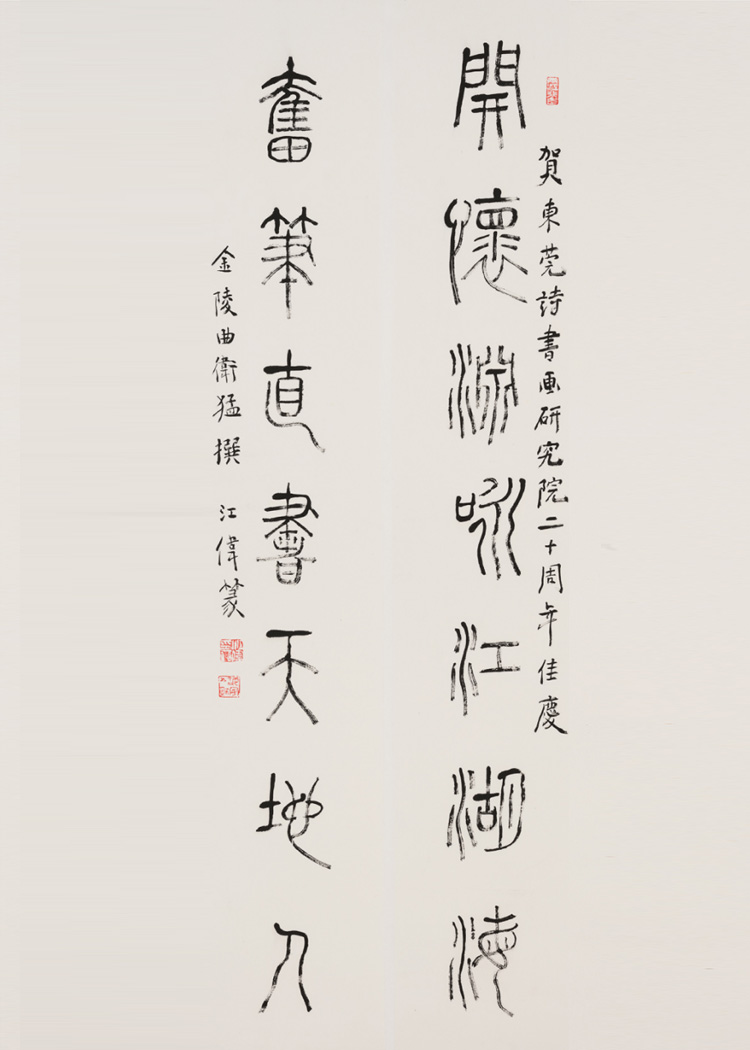 賀東莞詩書画研究院二十周年佳慶
開懷咏江湖海
奮筆直書天地人
金陵曲衛猛撰 江偉篆